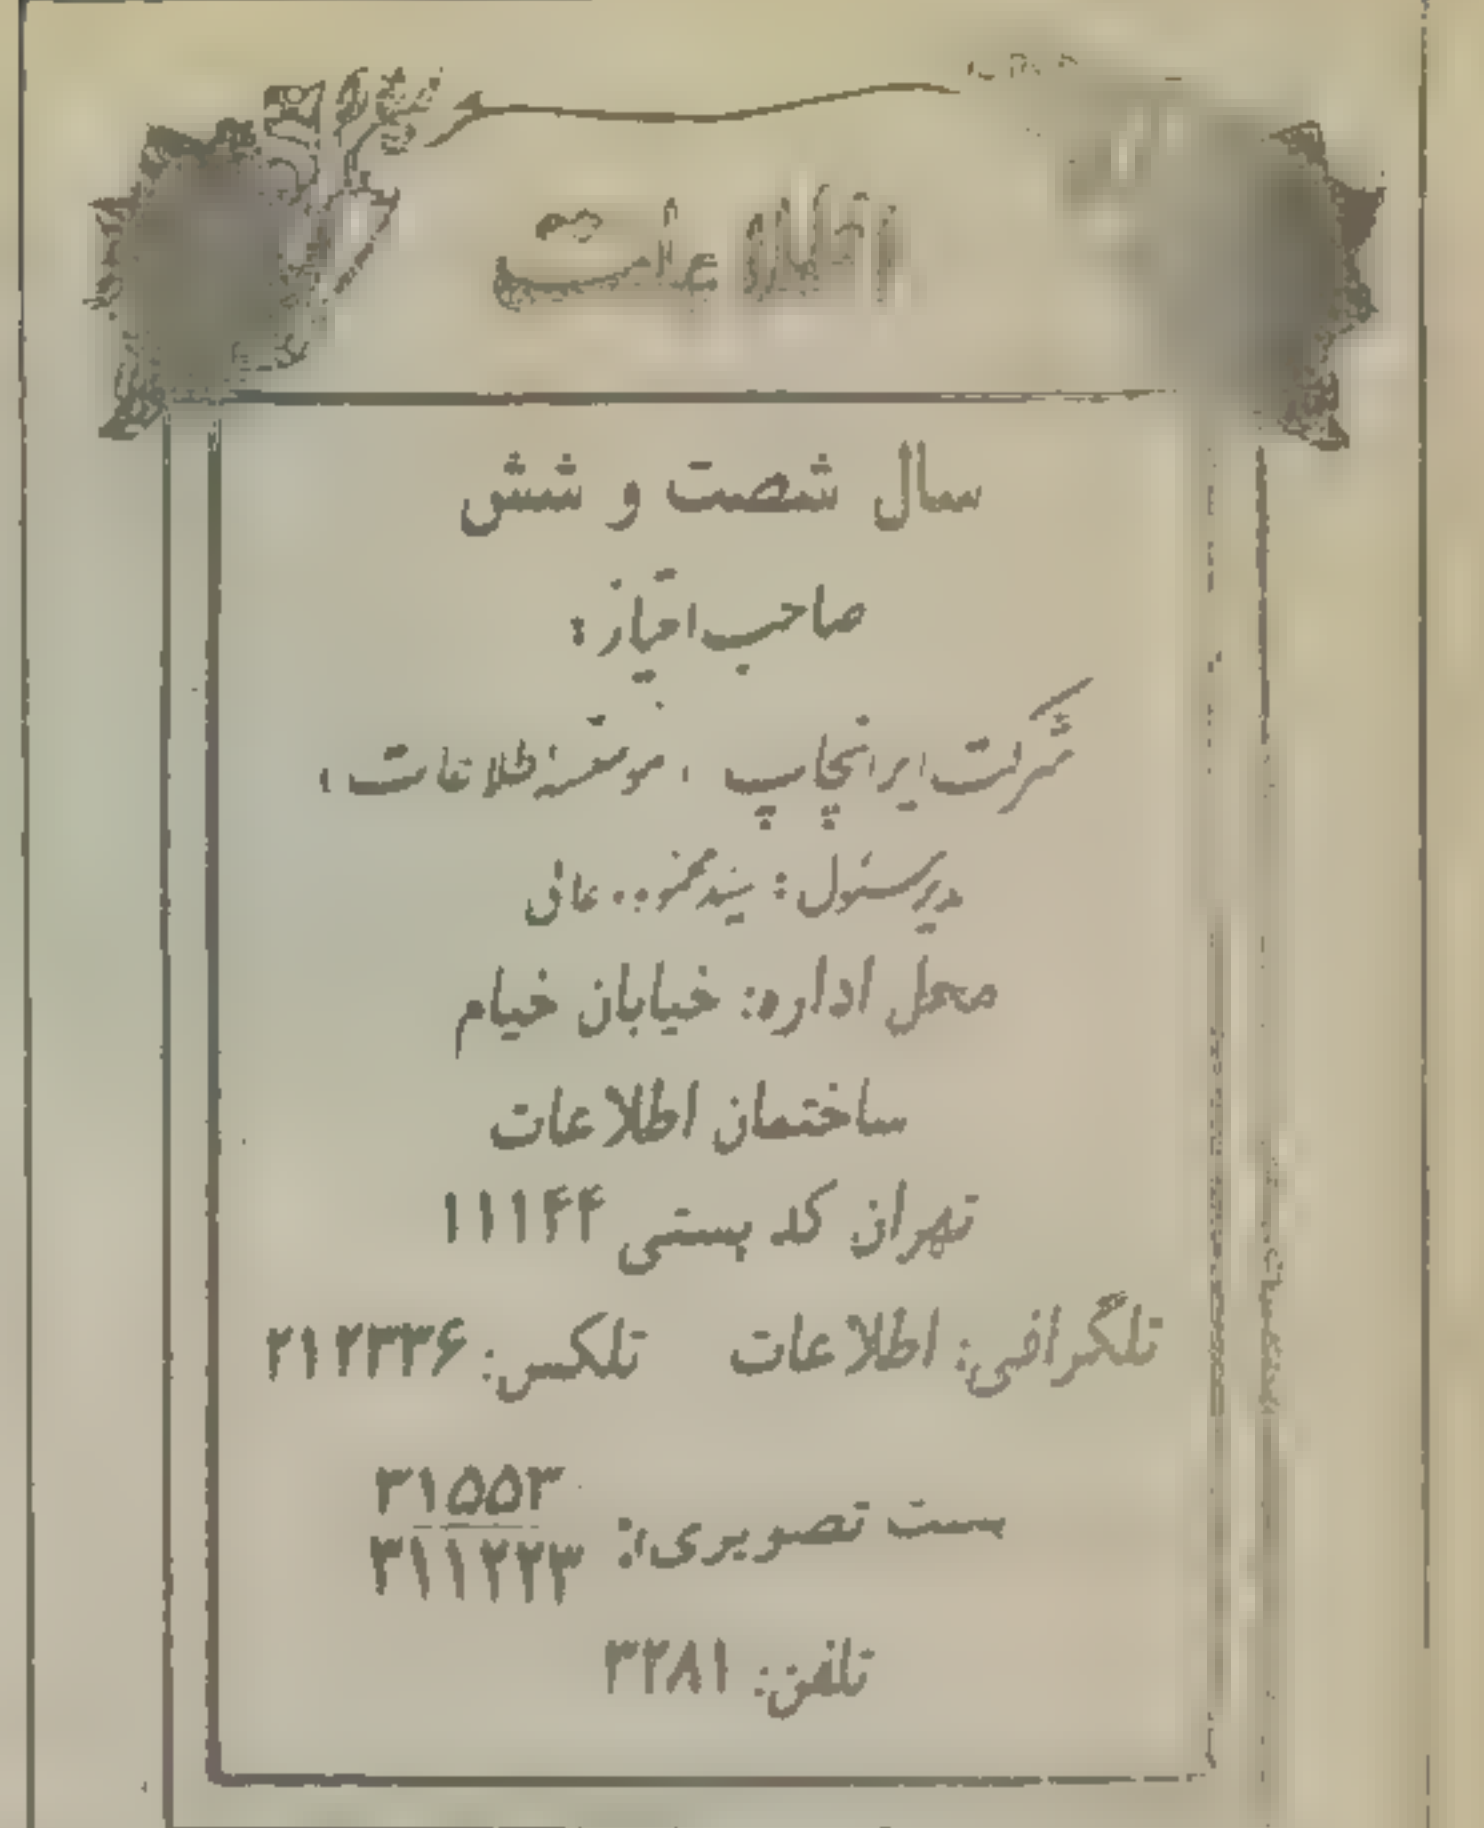 اطلاعات
سال شصت و شش
صاحب امتیاز:
شرکت ایرانچاپ «مؤسسه اطلاعات»
مدیر مسئول: سید محمود دعائی
محل اداره: خیابان خیام
ساختمان اطلاعات
تهران کد پستی ۱۱۱۴۴
تلگرافی: اطلاعات تلکس: ۲۱۲۳۳۶
پست تصویری: ۳۱۵۵۳
۳۱۱۲۲۳
تلفن: ۳۲۸۱